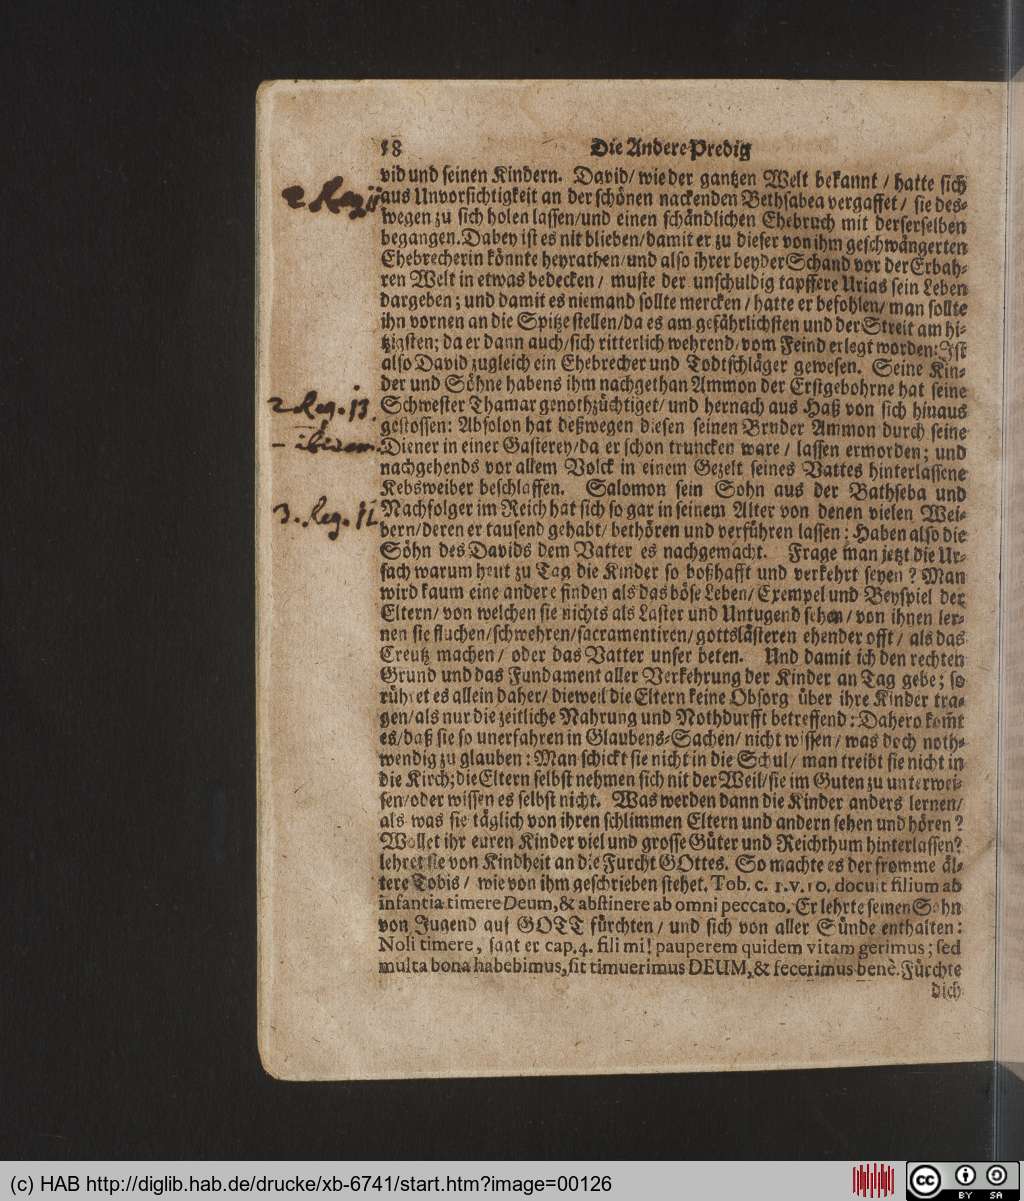 18 Die Andere Predig
vid und seinen Kindern. David/ wie der gantzen Welt bekannt / hatte sich
2 Reg. ij
aus Unvorsichtigkeit an der schönen nackenden Bethsabea vergaffet / sie des-
wegen zu sich holen lassen/und einen schändlichen Ehebruch mit derserselben
begangen. Dabey ist es nit blieben/damit er zu dieser von ihm geschwängerten
Ehebrecherin könnte heyrathen/und also ihrer beyder Schand vor der Erbah-
ren Welt in etwas bedecken / muste der unschuldig tapffere Urias sein Leben
dargeben; und damit es niemand sollte mercken / hatte er befohlen/ man sollte
ihn vornen an die Spitze stellen/da es am gefährlichsten und der Streit am hi-
tzigsten; da er dann auch/sich ritterlich wehrend/vom Feind erlegt worden: Ist
also David zugleich ein Ehebrecher und Todtschläger gewesen. Seine Kin-
der und Söhne habens ihm nachgethan Ammon der Erstgebohrne hat seine
2 Reg. 13.
Schwester Thamar genothzüchtiget/ und hernach aus Haß von sich hinaus
gestossen: Absolon hat deßwegen diesen seinen Bruder Ammon durch seine
- ibidem.
Diener in einer Gasterey/da er schon truncken ware / lassen ermorden; und
nachgehends vor allem Volck in einem Gezelt seines Vattes hinterlassene
Kebsweiber beschlaffen. Salomon sein Sohn aus der Bathseba und
3. Reg. 11
Nachfolger im Reich hat sich so gar in seinem Alter von denen vielen Wei-
bern/deren er tausend gehabt/ bethören und verführen lassen: Haben also die
Söhn des Davids dem Vatter es nachgemacht. Frage man jetzt die Ur-
sach warum heut zu Tag die Kinder so boßhafft und verkehrt seyen? Man
wird kaum eine andere finden als das böse Leben/ Exempel und Beyspiel der
Eltern/ von welchen sie nichts als Laster und Untugend sehen / von ihnen ler-
nen sie fluchen/schwehren/sacramentiren/gottslästeren ehender offt / als das
Creutz machen / oder das Vatter unser beten. Und damit ich den rechten
Grund und das Fundament aller Verkehrung der Kinder an Tag gebe; so
rühret es allein daher/ dieweil die Eltern keine Obsorg über ihre Kinder tra-
gen/als nur die zeitliche Nahrung und Nothdurfft betreffend: Dahero kom̃t
es/daß sie so unerfahren in Glaubens-Sachen/ nicht wissen / was doch noth-
wendig zu glauben: Man schickt sie nicht in die Schul/ man treibt sie nicht in
die Kirch; die Eltern selbst nehmen sich nit der Weil/sie im Guten zu unterwei-
sen/oder wissen es selbst nicht. Was werden dann die Kinder anders lernen/
als was sie täglich von ihren schlimmen Eltern und andern sehen und hören?
Wollet ihr euren Kinder viel und grosse Güter und Reichthum hinterlassen?
lehret sie von Kindheit an die Furcht GOttes. So machte es der fromme äl-
tere Tobis / wie von ihm geschrieben stehet. Tob. c. 1. v. 10. docuit filium ab
infantia timere Deum, & abstinere ab omni peccato. Er lehrte seinen Sohn
von Jugend auf GOTT fürchten / und sich von aller Sünde enthalten:
Noli timere, sagt er cap. 4. fili mi! pauperem quidem vitam gerimus; sed
multa bona habebimus, sit timuerimus DEUM, & fecerimus benè. Fürchte
dich
(c) HAB http://diglib.hab.de/drucke/xb-6741/start.htm?image=00126
cc BY SA